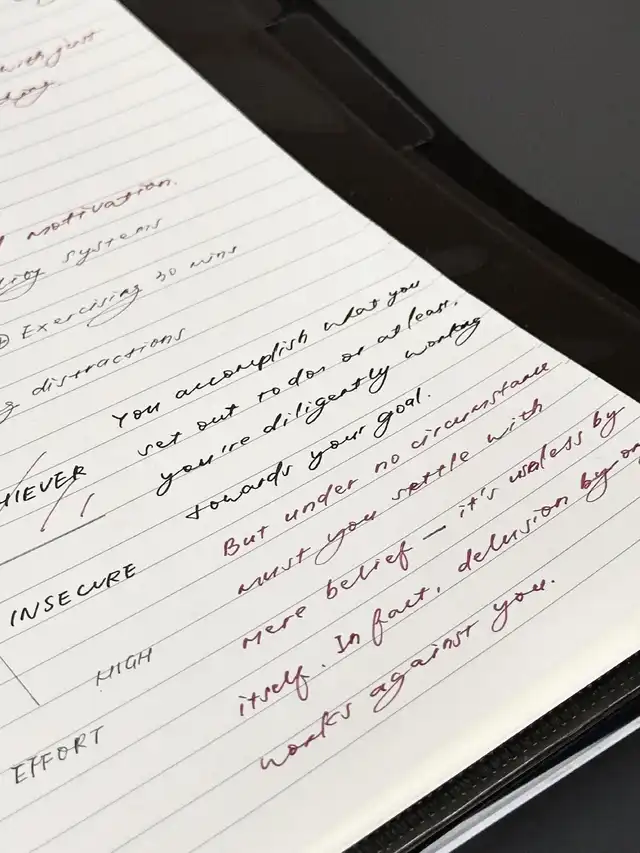 with just
motivation.
systems
Exercising 30 mins
distractions
You accomplish what you
set out to do, or at least,
you're diligently working
towards your goal.
But under no circumstance
must you settle with
mere belief — it's useless by
itself. In fact, delusion by
works against you.
INSECURE
HIGH
EFFORT